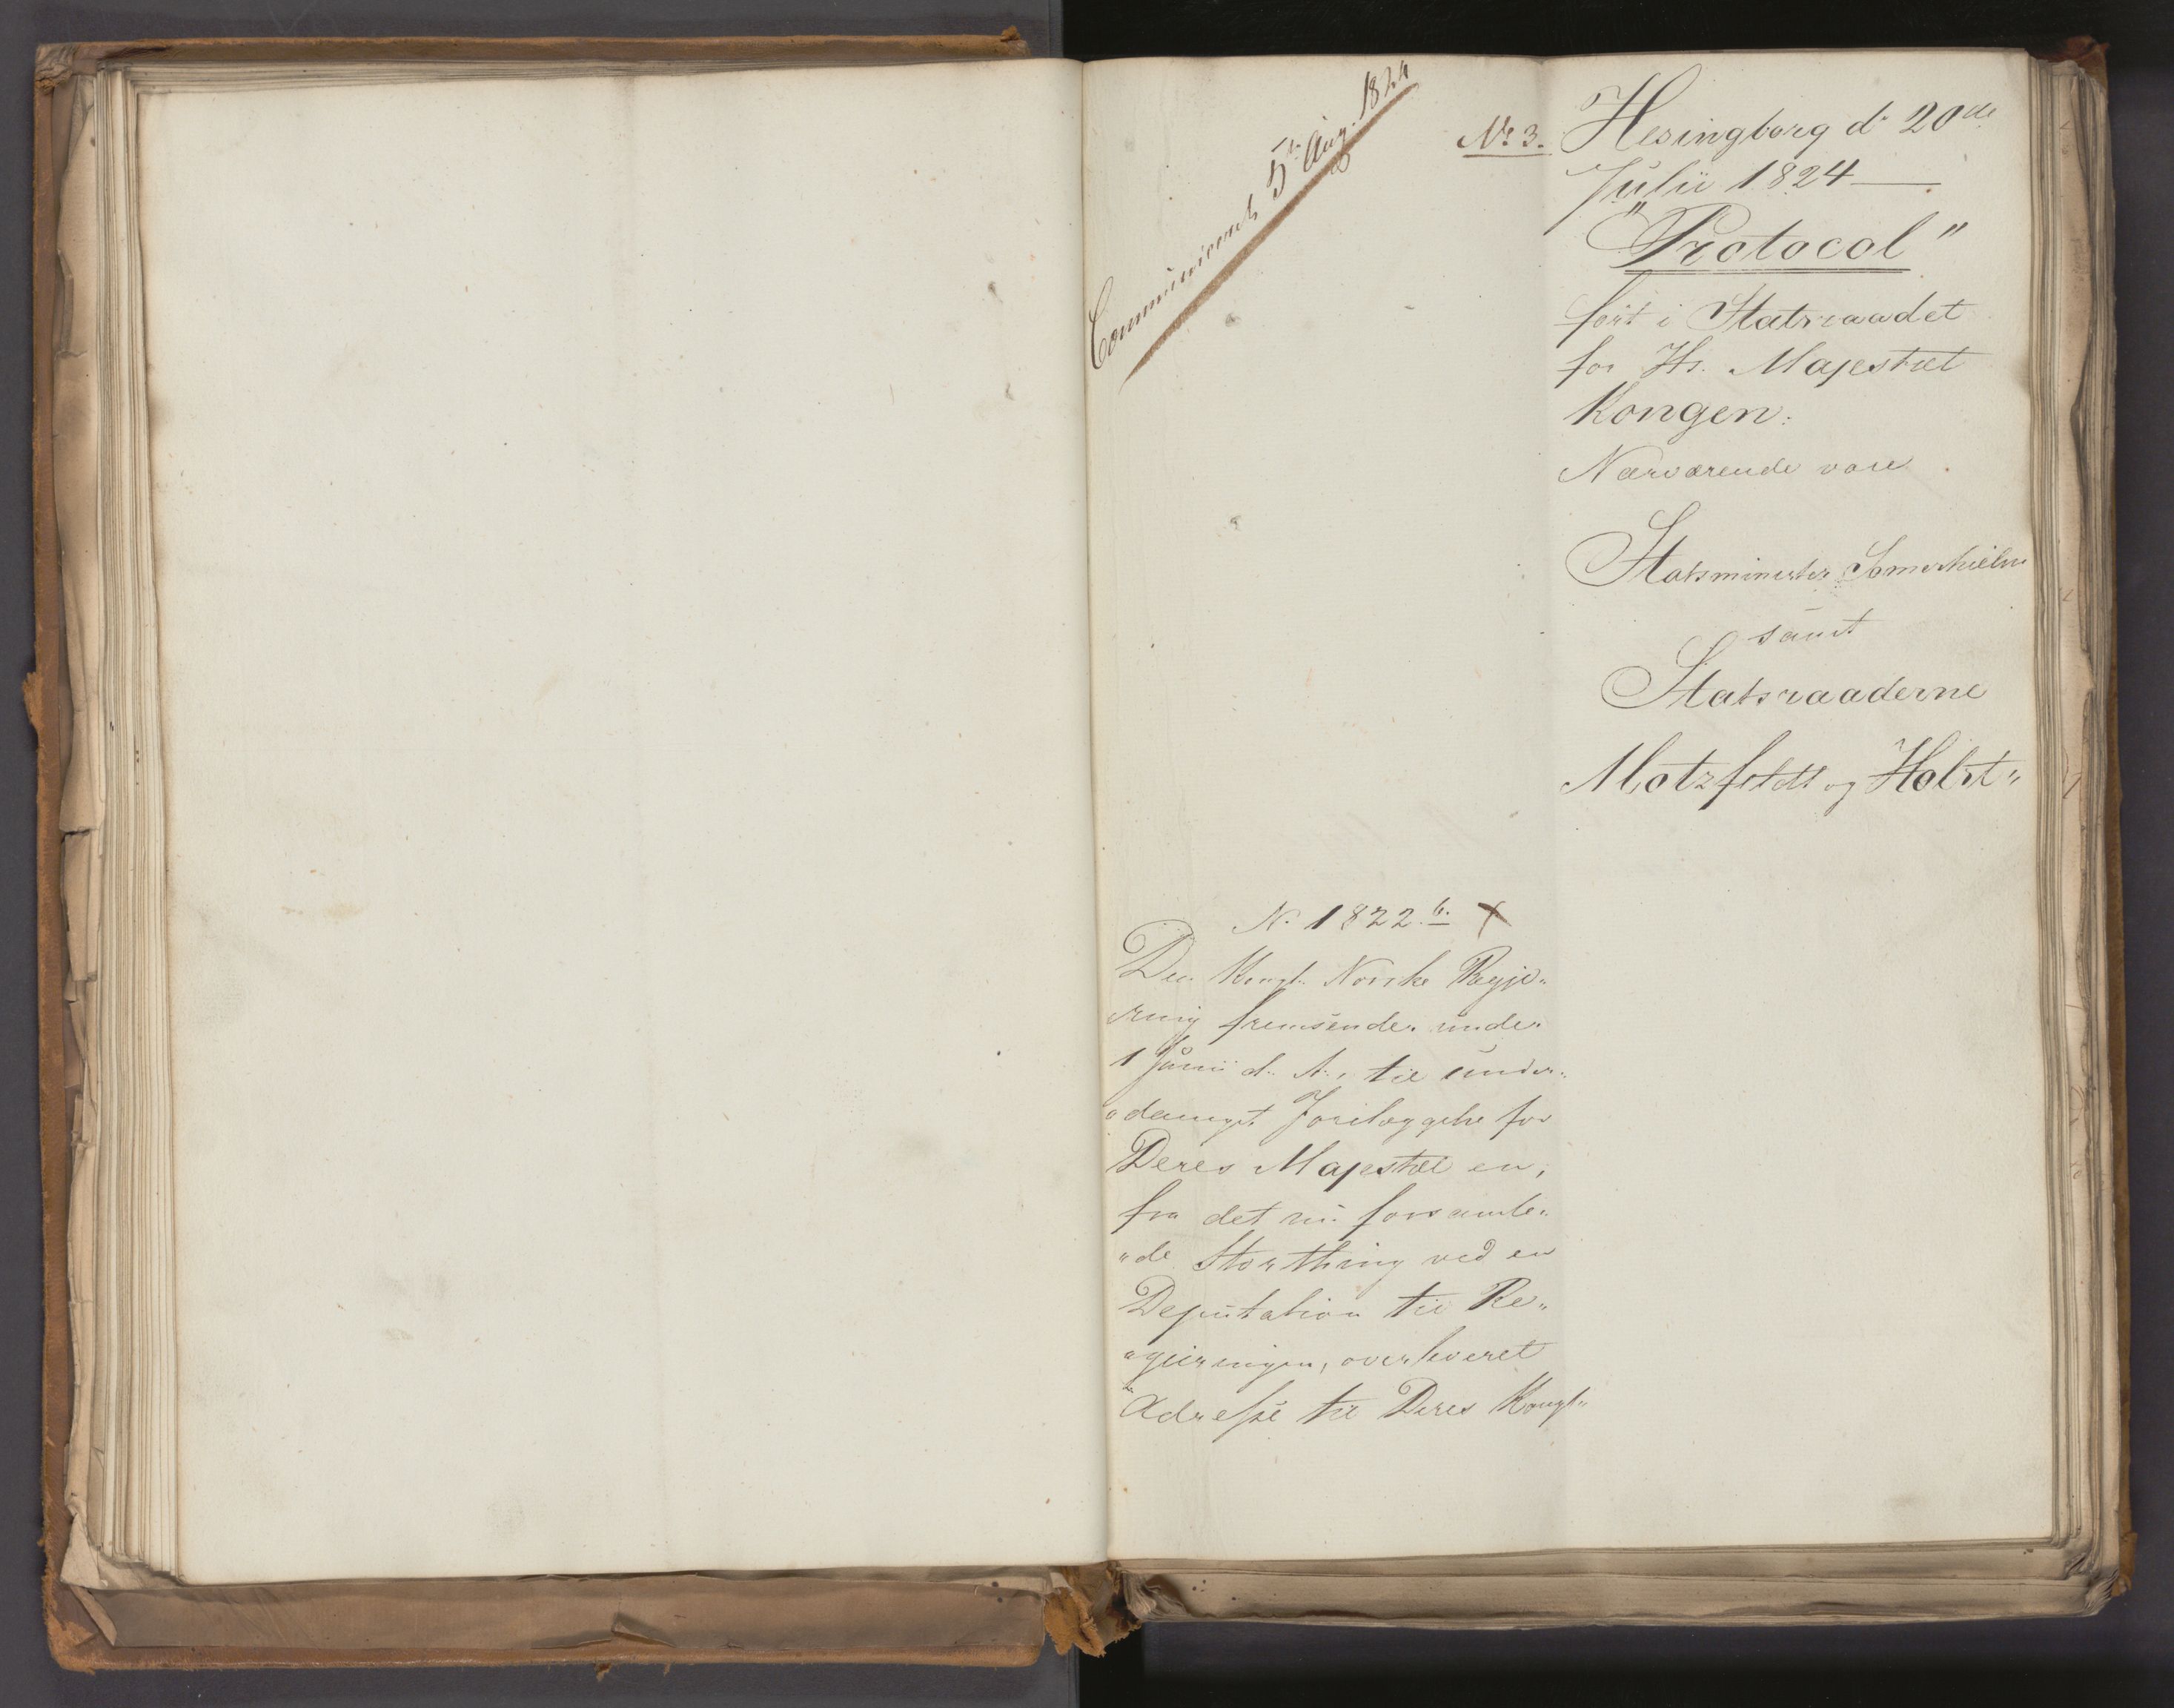 Communiceret 5te Aug. 1824
No 3. Hesingborg d. 20de
Julii 1824 —
"Protocol"
fört i Statsraadet
for Hs. Majestæt
Kongen:
Nærværende vare
Statsminister Sommerhielm
samt
Statsraaderne
Motzfeldt og Holst"
No 1822 b. X
Den Kongl. Norske Regje„
„ring fremsender under
1 Junii d. A., til under„
„danigst Forelæggelse for
Deres Majestæt en,
fra det nu forsamle„
„de Storthing ved en
Deputation til Re„
„gieringen, overleveret
Adresse til Deres Kongl„